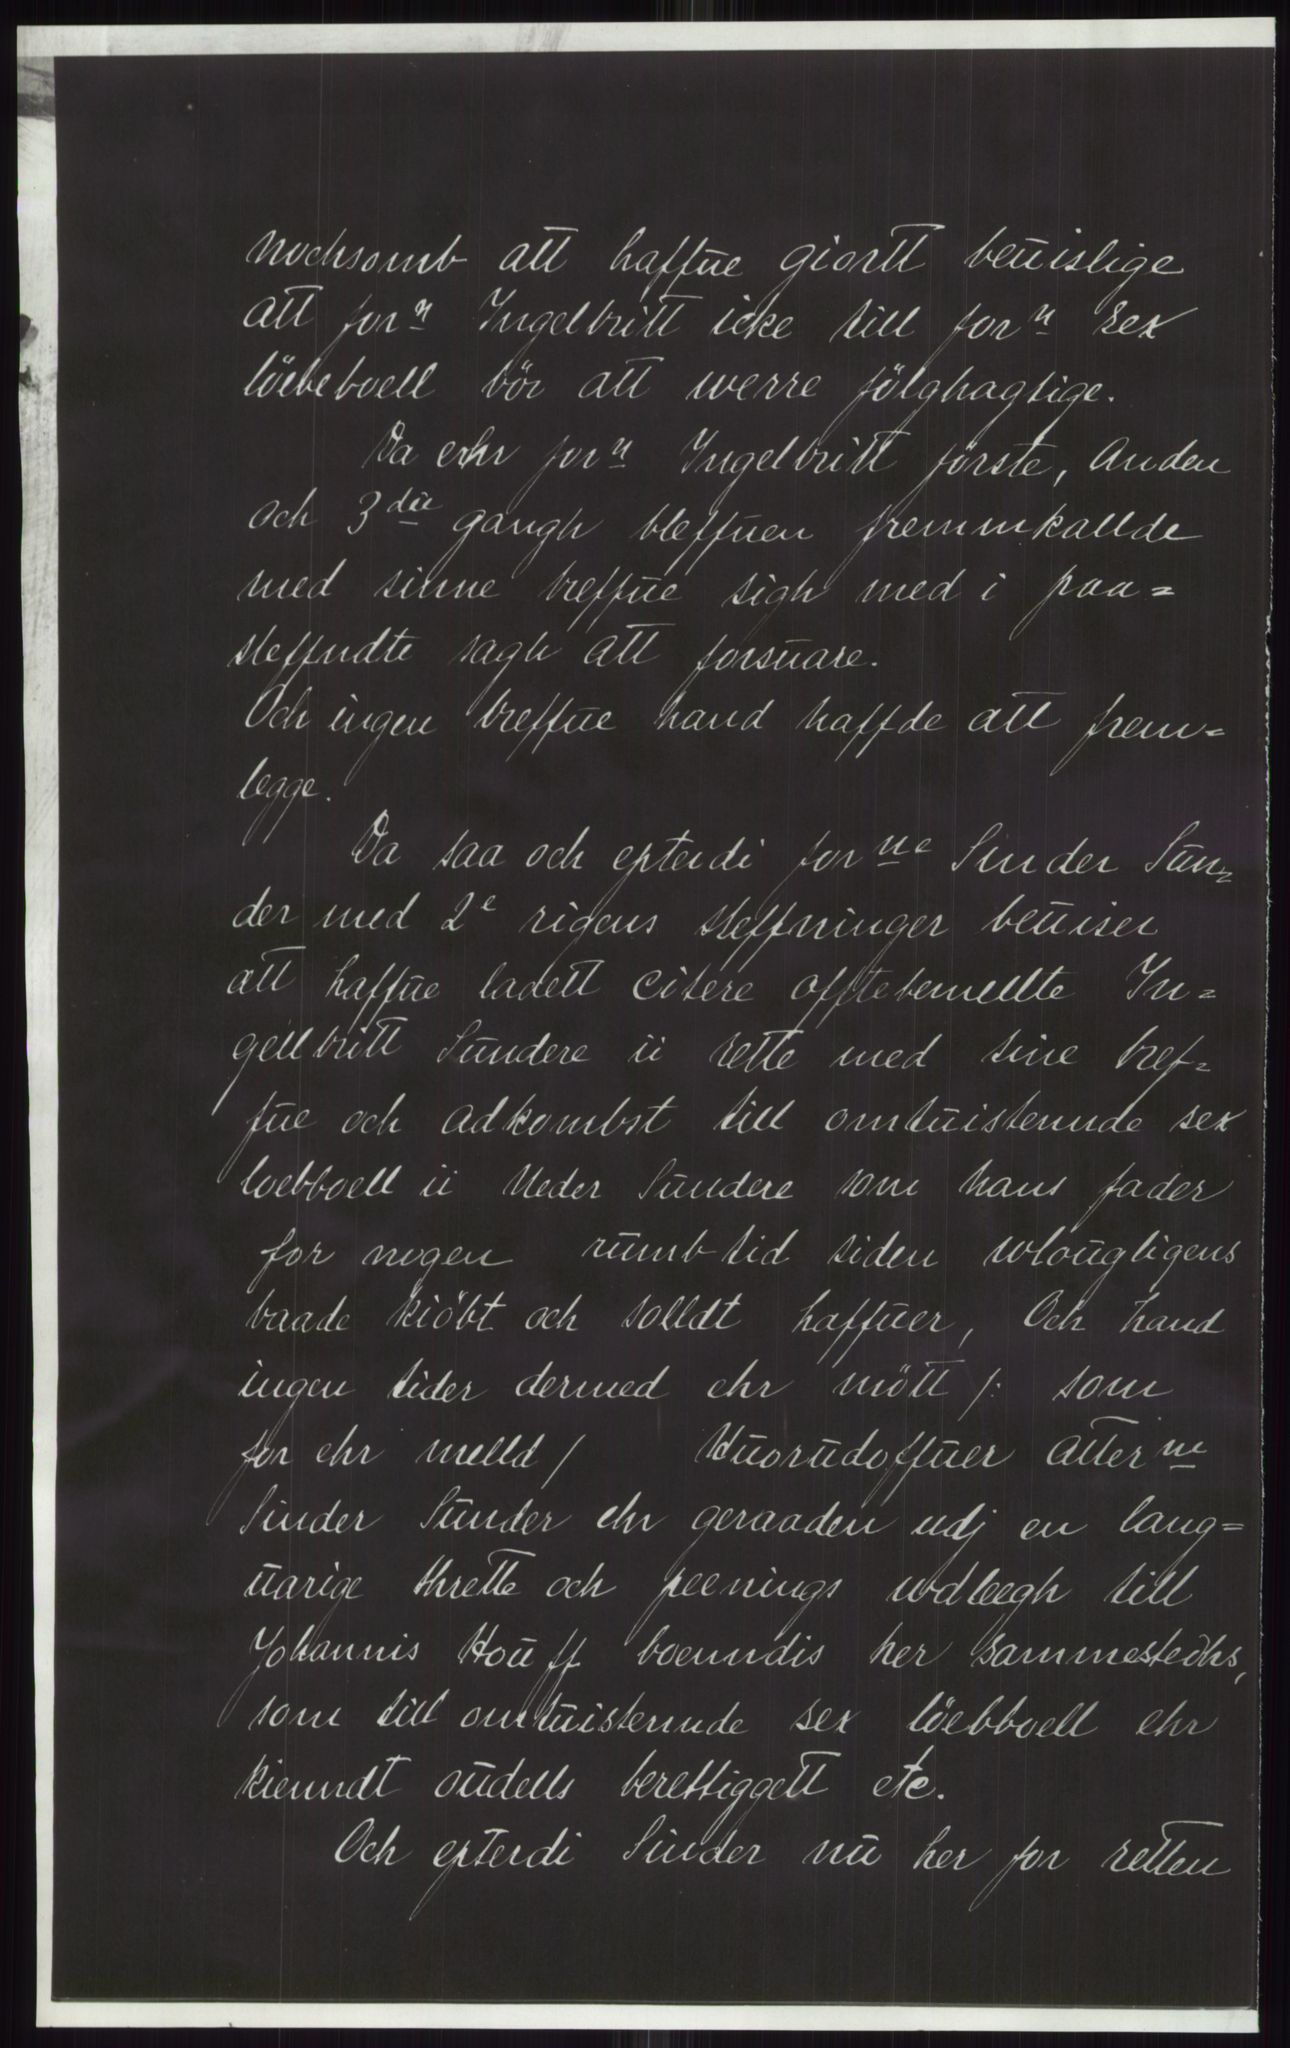 nochsomb att haffue giortt beuislige
att forn Ingelbritt icke till forn sex
löebboell bör att werre fölghagtige.
Da erhr forn Ingelbritt förste, Anden
och 3die gangh bleffuen fremmkallde
med sinne breffue sigh med i paa=
steffndte sagh att forsuare.
Och ingen breffue hand haffde att frem=
legge.
Da saa och epterdi forne Sinder Sun=
der med 2e rigens steffninger beuiser
att haffue ladett citere offtebemellte In=
gellbritt Sundere ii rette med sine bref=
fue och adkombst till omtuistennde sex
loebboell ii Neder Sundere som hans fader
for nogen rumb tid siden wlougligens
baade kiöbt och solldt haffuer, Och hand
ingen tider dermed ehr mött /: som
for ehr melld / Huorudoffuer atterne
Sinder Sunder ehr geraaden udj en lang=
uarige thrette och peenings wdleegh till
Johannis Houff boenndis her sammestedhs,
som till omtuistennde sex löebboell ehr
kienndt oudells berettiggett etc.
Och epterdi Sinder nu her for retten